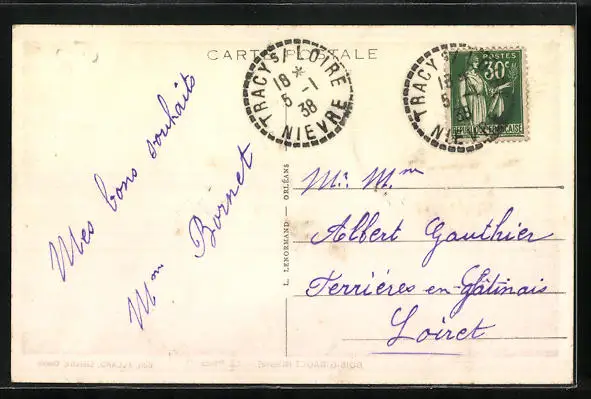 CARTE POSTALE
TRACY S/ LOIRE
18 *
5 -1
38
NIEVRE
TRACY S/
18
5
38
NIEVRE
POSTES
30c
REPUBLIQUE FRANCAISE
Mes bons souhaits
Mme Bornet
L. LENORMAND — ORLÉANS
Mr. Mme
Albert Gauthier
Ferrières en-Gâtinais
Loiret